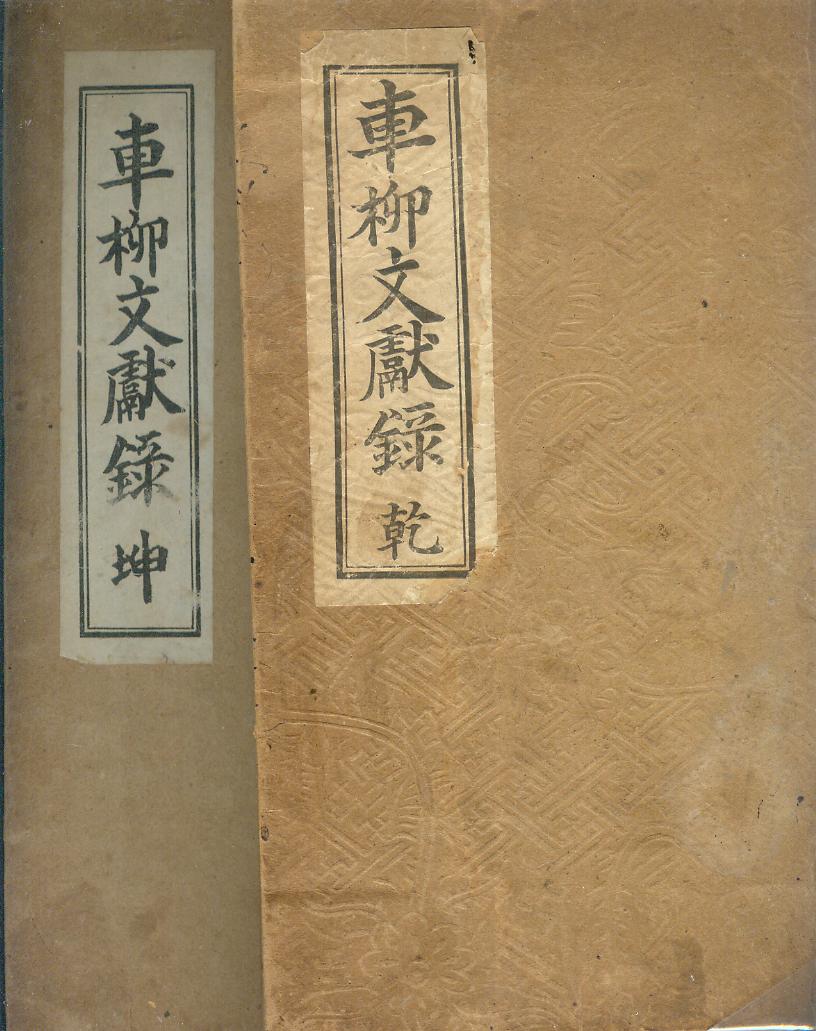 車柳文獻錄 乾
車柳文獻錄 坤